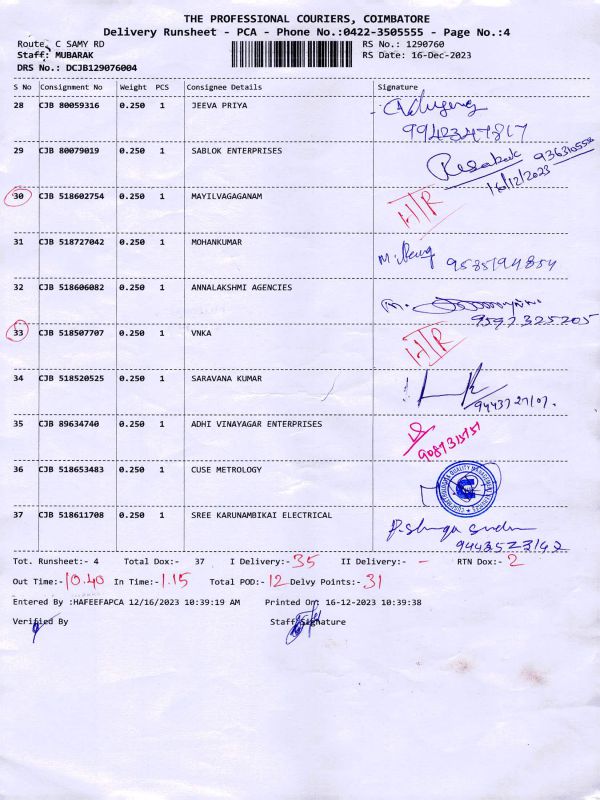 THE PROFESSIONAL COURIERS, COIMBATORE
Delivery Runsheet - PCA - Phone No.:0422-3505555 - Page No.:4
Route: C SAMY RD RS No.: 1290760
Staff: MUBARAK RS Date: 16-Dec-2023
DRS No.: DCJB129076004
S No Consignment No Weight PCS Consignee Details Signature
28 CJB 80059316 0.250 1 JEEVA PRIYA
9942347817
29 CJB 80079019 0.250 1 SABLOK ENTERPRISES
16/12/2023
30 CJB 518602754 0.250 1 MAYILVAGAGANAM H/R
31 CJB 518727042 0.250 1 MOHANKUMAR
9585194854
32 CJB 518606082 0.250 1 ANNALAKSHMI AGENCIES
9597325205
33 CJB 518507707 0.250 1 VNKA H/R
34 CJB 518520525 0.250 1 SARAVANA KUMAR
35 CJB 89634740 0.250 1 ADHI VINAYAGAR ENTERPRISES
36 CJB 518653483 0.250 1 CUSE METROLOGY
37 CJB 518611708 0.250 1 SREE KARUNAMBIKAI ELECTRICAL
9443523142
Tot. Runsheet:- 4 Total Dox:- 37 I Delivery:- 35 II Delivery:- - RTN Dox:- 2
Out Time:- 10.40 In Time:- 1.15 Total POD:- 12 Delvy Points:- 31
Entered By :HAFEEFAPCA 12/16/2023 10:39:19 AM Printed On: 16-12-2023 10:39:38
Verified By Staff Signature